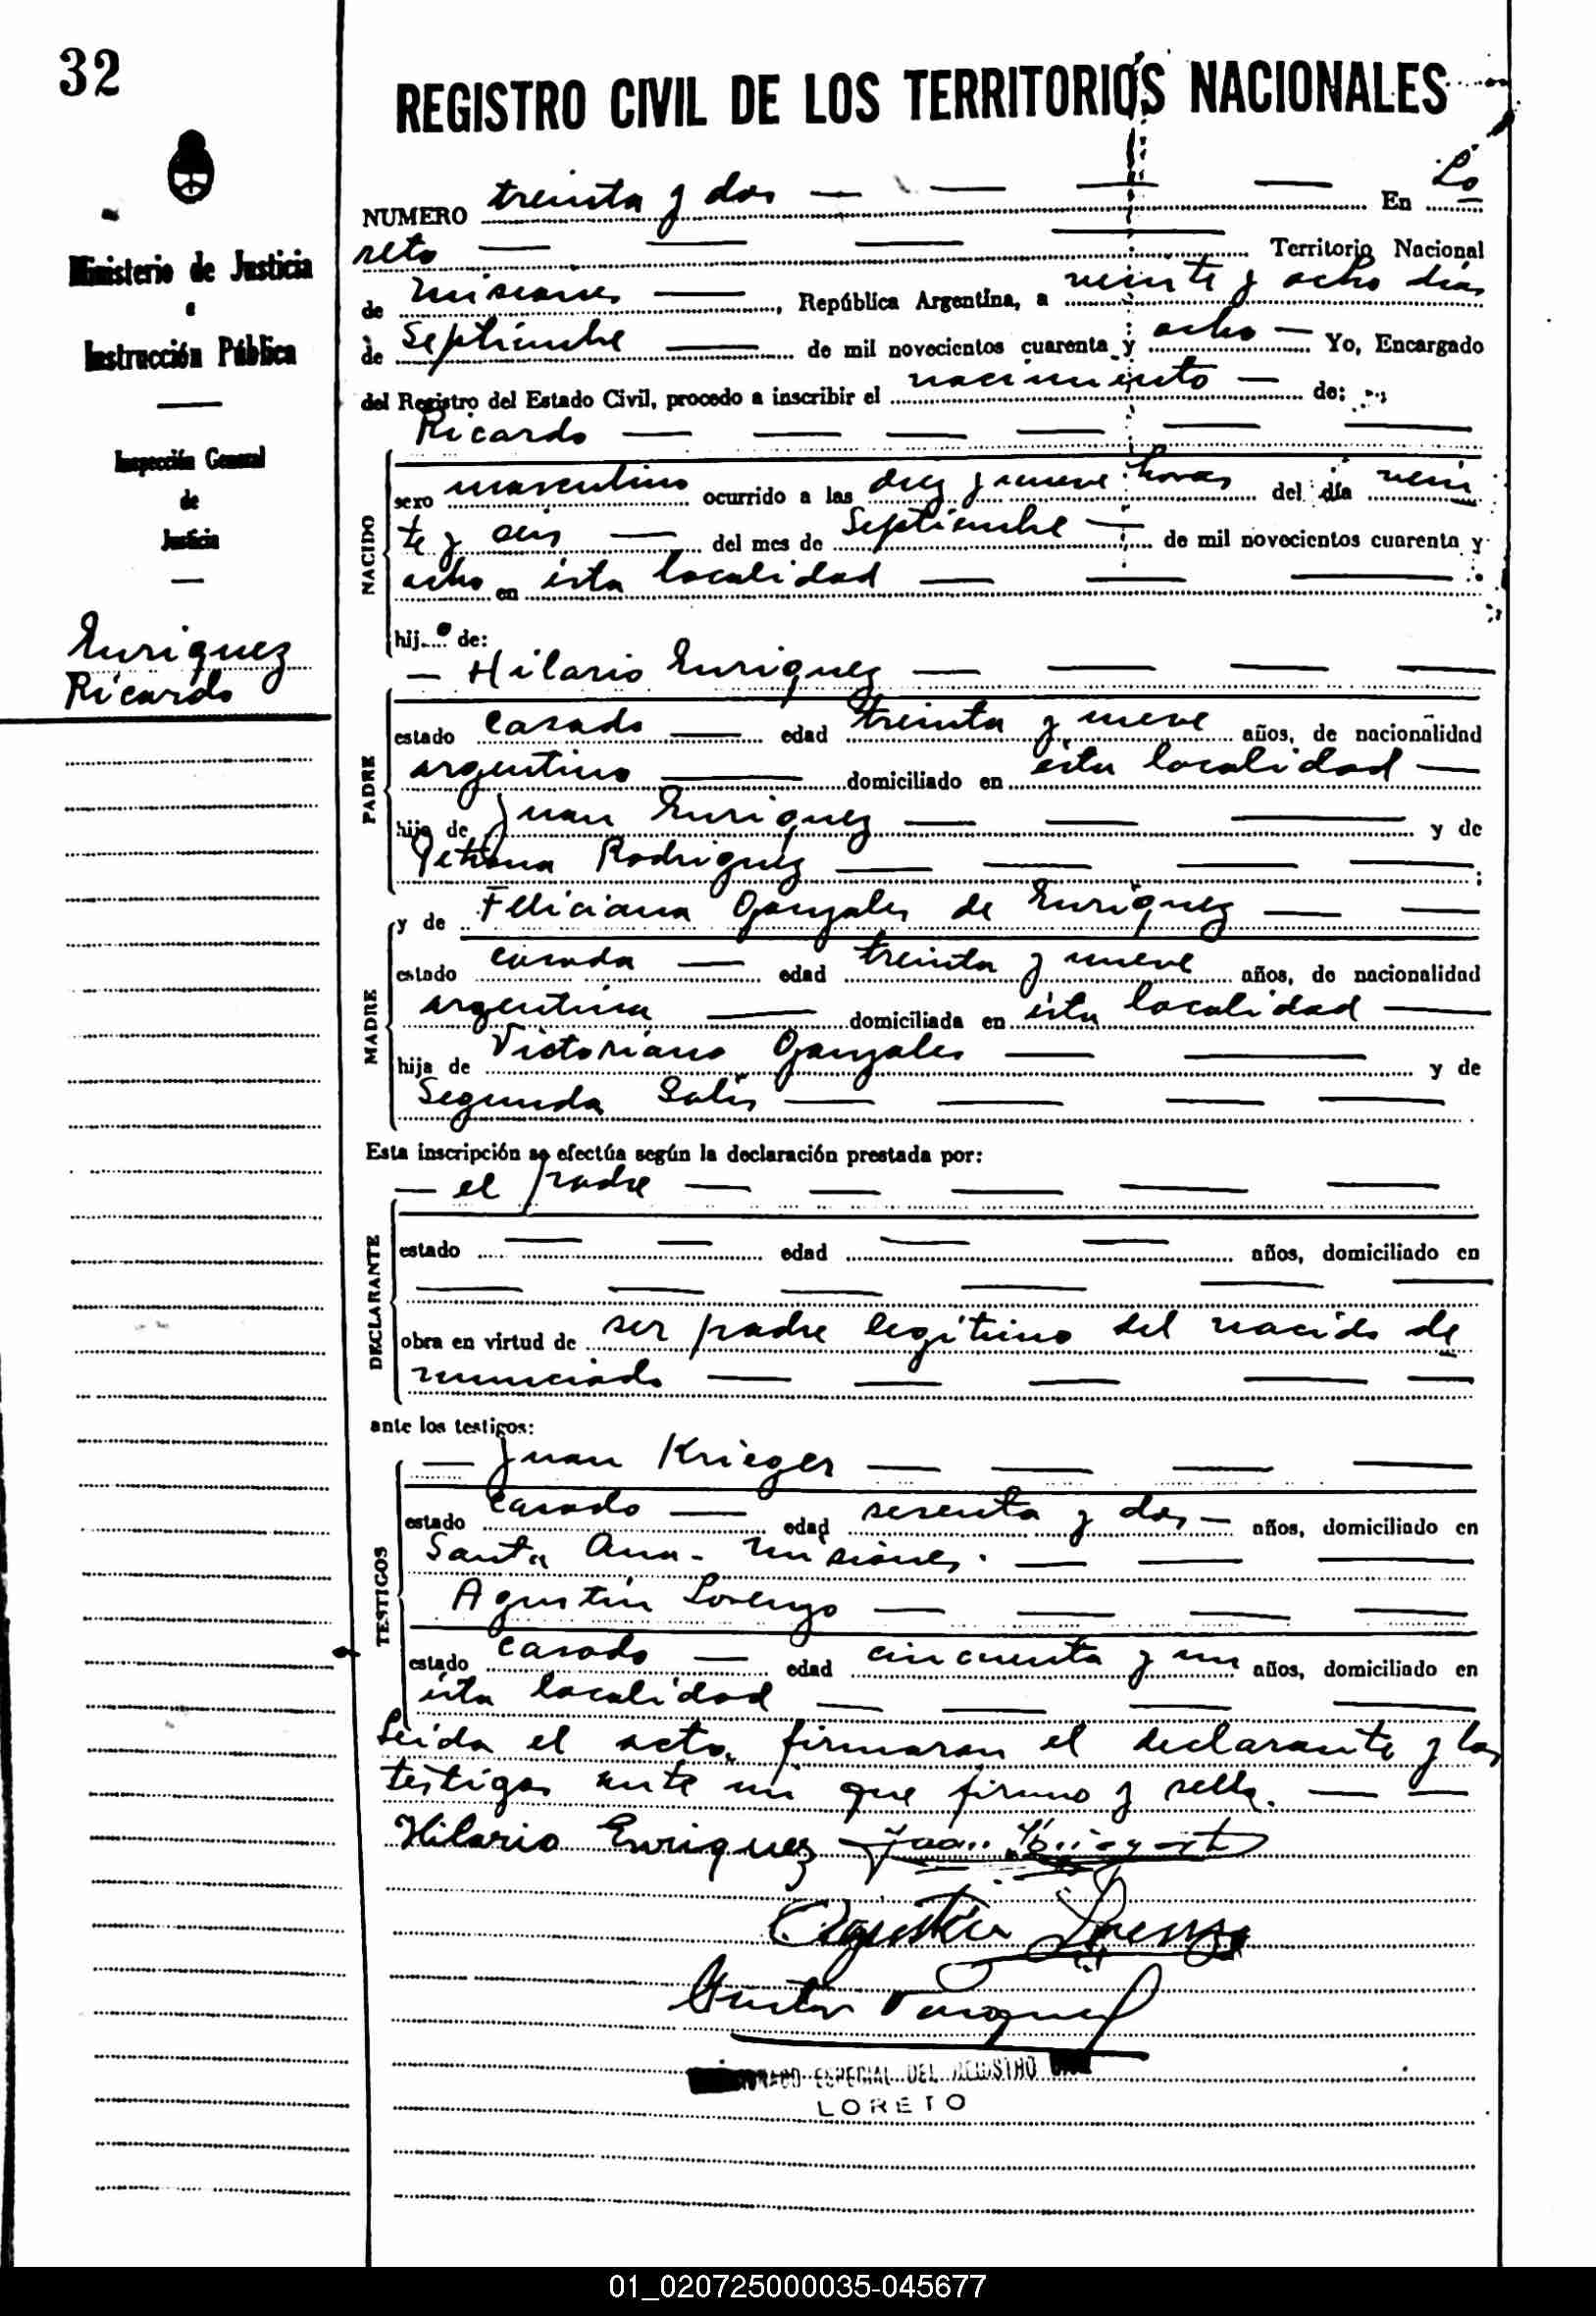 32
Ministerio de Justicia
e
Instrucción Pública
Inspección General
de
Justicia
Enriquez
Ricardo
REGISTRO CIVIL DE LOS TERRITORIOS NACIONALES
NUMERO treinta y dos — — — — En Lo
reto — — — — Territorio Nacional
de Misiones —, República Argentina, a veinte y ocho días
de Septiembre — de mil novecientos cuarenta y ocho — Yo, Encargado
del Registro del Estado Civil, procedo a inscribir el nacimiento — de:
Ricardo — — — — — —
NACIDO
sexo masculino ocurrido a las diez y nueve horas del día vein
te y seis — del mes de Septiembre — de mil novecientos cuarenta y
ocho en ésta localidad — — —
hijo de:
— Hilario Enriquez — — — —
PADRE
estado casado — edad treinta y nueve años, de nacionalidad
argentino — domiciliado en ésta localidad —
hijo de Juan Enriquez — — — y de
Petrona Rodriguez — — — — ;
MADRE
y de Feliciana Gonzales de Enriquez — —
estado casada — edad treinta y nueve años, de nacionalidad
argentina — domiciliada en ésta localidad —
hija de Victoriano Gonzales — — y de
Segunda Solis — — — —
Esta inscripción se efectúa según la declaración prestada por:
— el padre — — — — —
DECLARANTE
estado — — edad — — años, domiciliado en
— — — — — —
obra en virtud de ser padre legítimo del nacido de
nunciado — — — — —
ante los testigos:
TESTIGOS
— Juan Krieger — — — —
estado casado — edad sesenta y dos — años, domiciliado en
Santa Ana - Misiones. — — —
Agustín Lorenzo — — — —
estado casado — edad cincuenta y un años, domiciliado en
ésta localidad — — — —
Leída el acta, firmaron el declarante y los
testigos ante mi que firmo y sello. — —
Hilario Enriquez Juan
Agustín Lorenzo
ESPECIAL DEL REGISTRO
LORETO
01_020725000035-045677